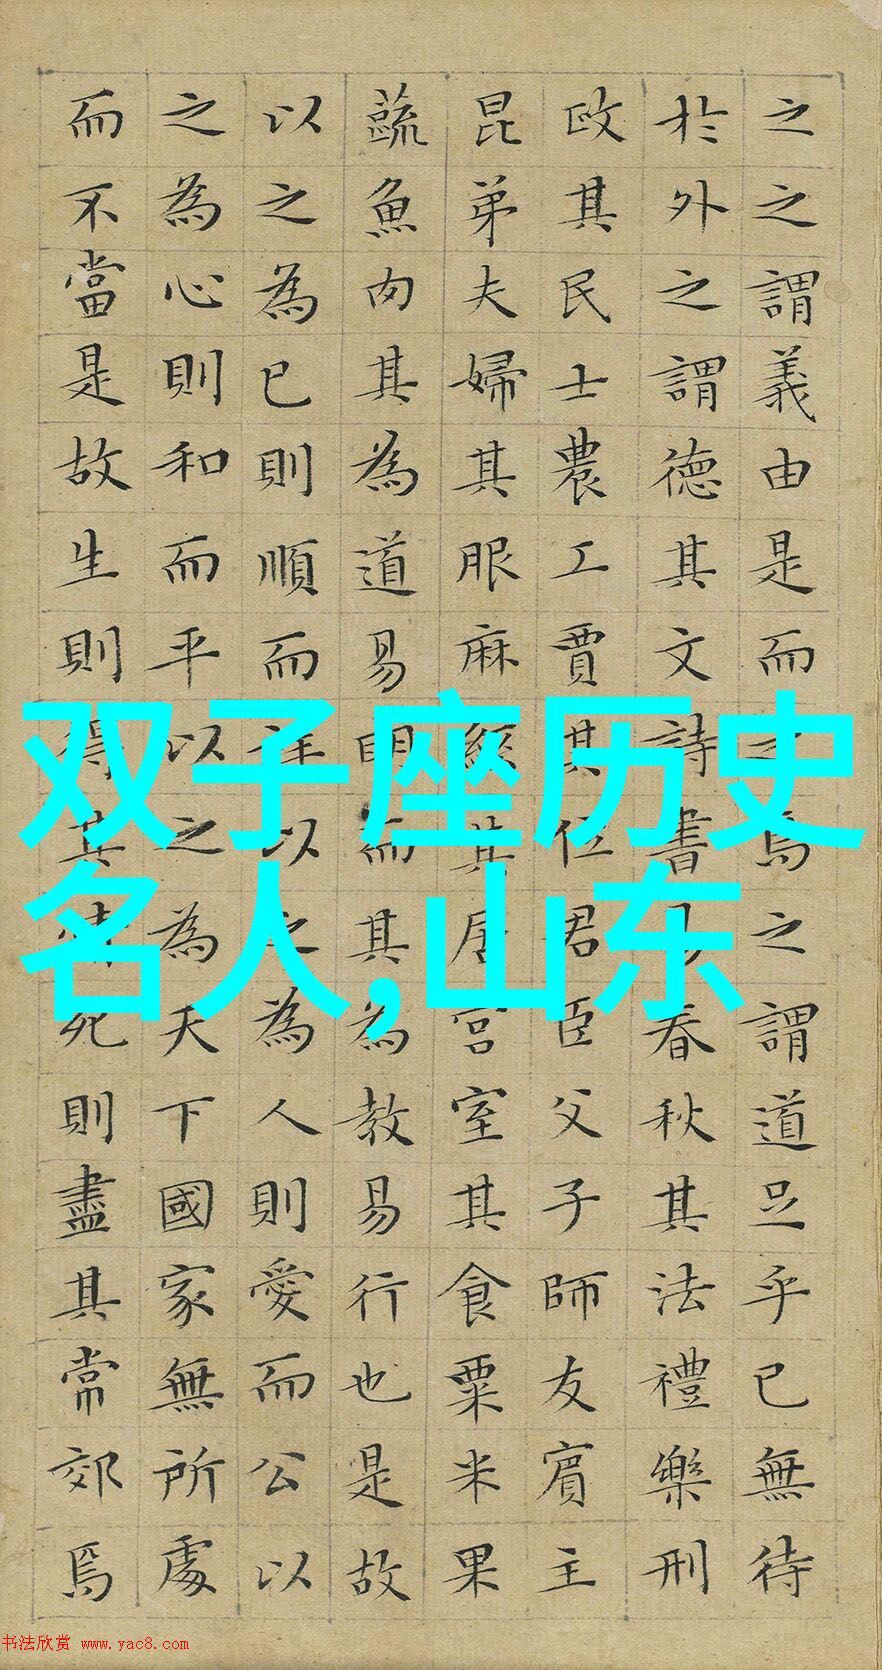 之之謂義由是而焉之謂道足乎已無待
於外之謂德其文詩書春秋其法禮樂刑
政其民士農工賈其位君臣父子師友賓主
昆弟夫婦其服麻絲其居宮室其食粟米果
蔬魚肉其為道易明而其為教易行也是故
以之為已則順而祥以之為人則愛而公以
之為心則和而平以之為天下國家無所處
而不當是故生則得其死則盡其常郊焉
双子座历史
名人,山东
书法欣赏 www.yac8.com